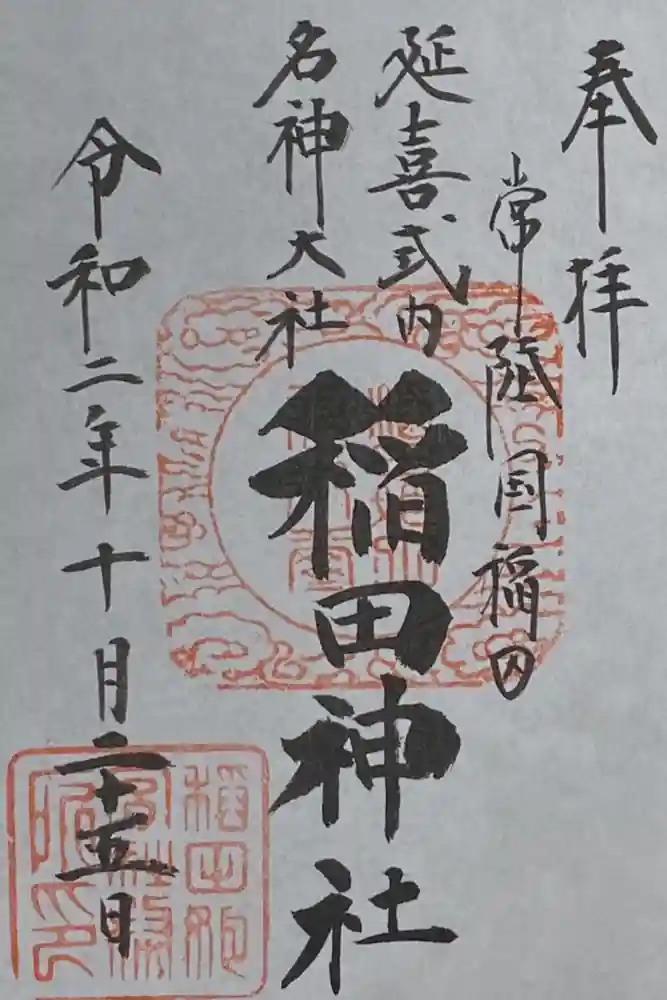 奉拝
常陸国稲田
延喜式内
名神大社
稲田神社
令和二年十月二十五日